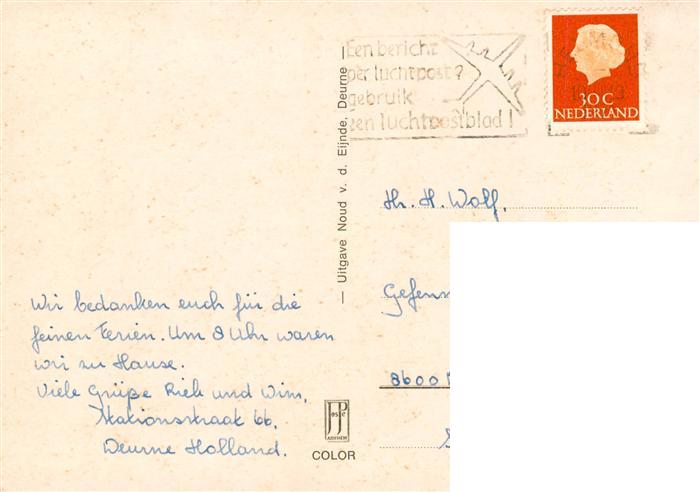 Een bericht
per luchtpost?
gebruik
een luchtpostblad!
30 C
NEDERLAND
— Uitgave Noud v. d. Eijnde, Deurne —
Wir bedanken euch für die
feinen Ferien. Um 8 Uhr waren
wir zu Hause.
Viele Grüße Riek und Wim,
Stationsstraat 66,
Deurne Holland.
JosPé
ARNHEM
COLOR
Hr. H. Wolf,
Gefens
8600